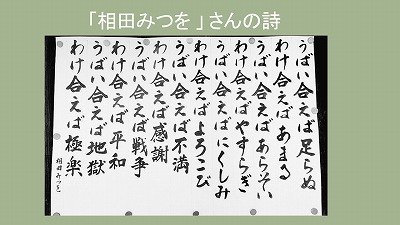 「相田みつを」さんの詩
うばい合えば足らぬ
わけ合えばあまる
うばい合えばあらそい
わけ合えばやすらぎ
うばい合えばにくしみ
わけ合えばよろこび
うばい合えば不満
わけ合えば感謝
うばい合えば戦争
わけ合えば平和
うばい合えば地獄
わけ合えば極楽
相田みつを